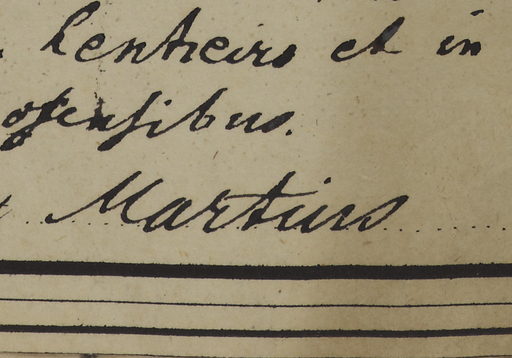 Lentieirs et in
ofensibus.
Martiirs